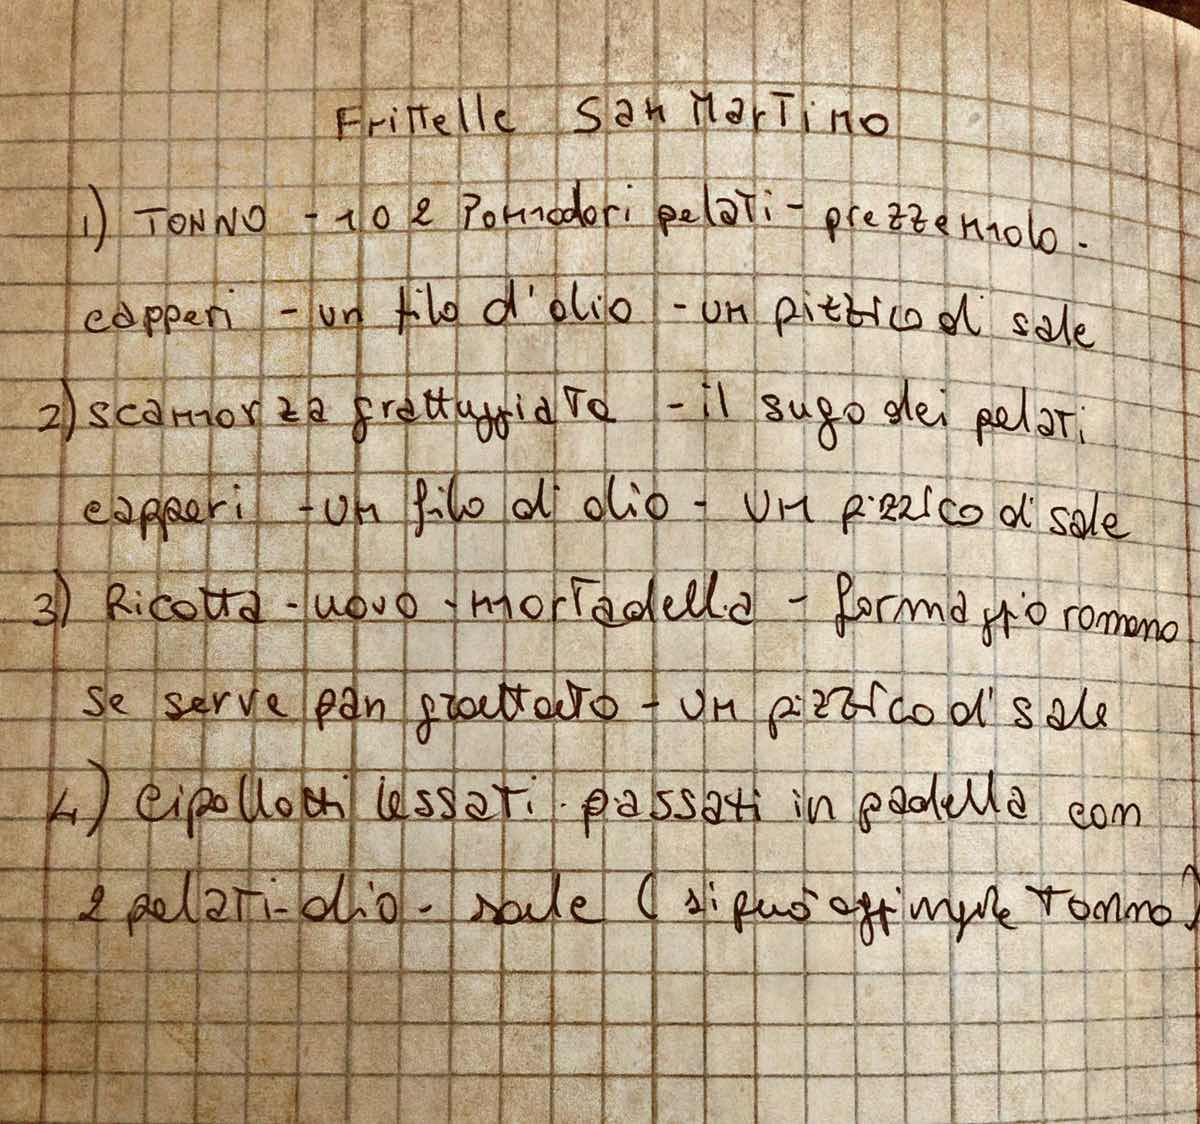 Frittelle San Martino
1) TONNO - 1 o 2 Pomodori pelati - prezzemolo -
capperi - un filo d'olio - un pizzico di sale
2) scamorza grattuggiata - il sugo dei pelati
capperi - un filo di olio - un pizzico di sale
3) Ricotta - uovo - mortadella - formaggio romano
se serve pan grattato - un pizzico di sale
4) cipollotti lessati - passati in padella con
2 pelati - olio - sale (si può aggiungere tonno)